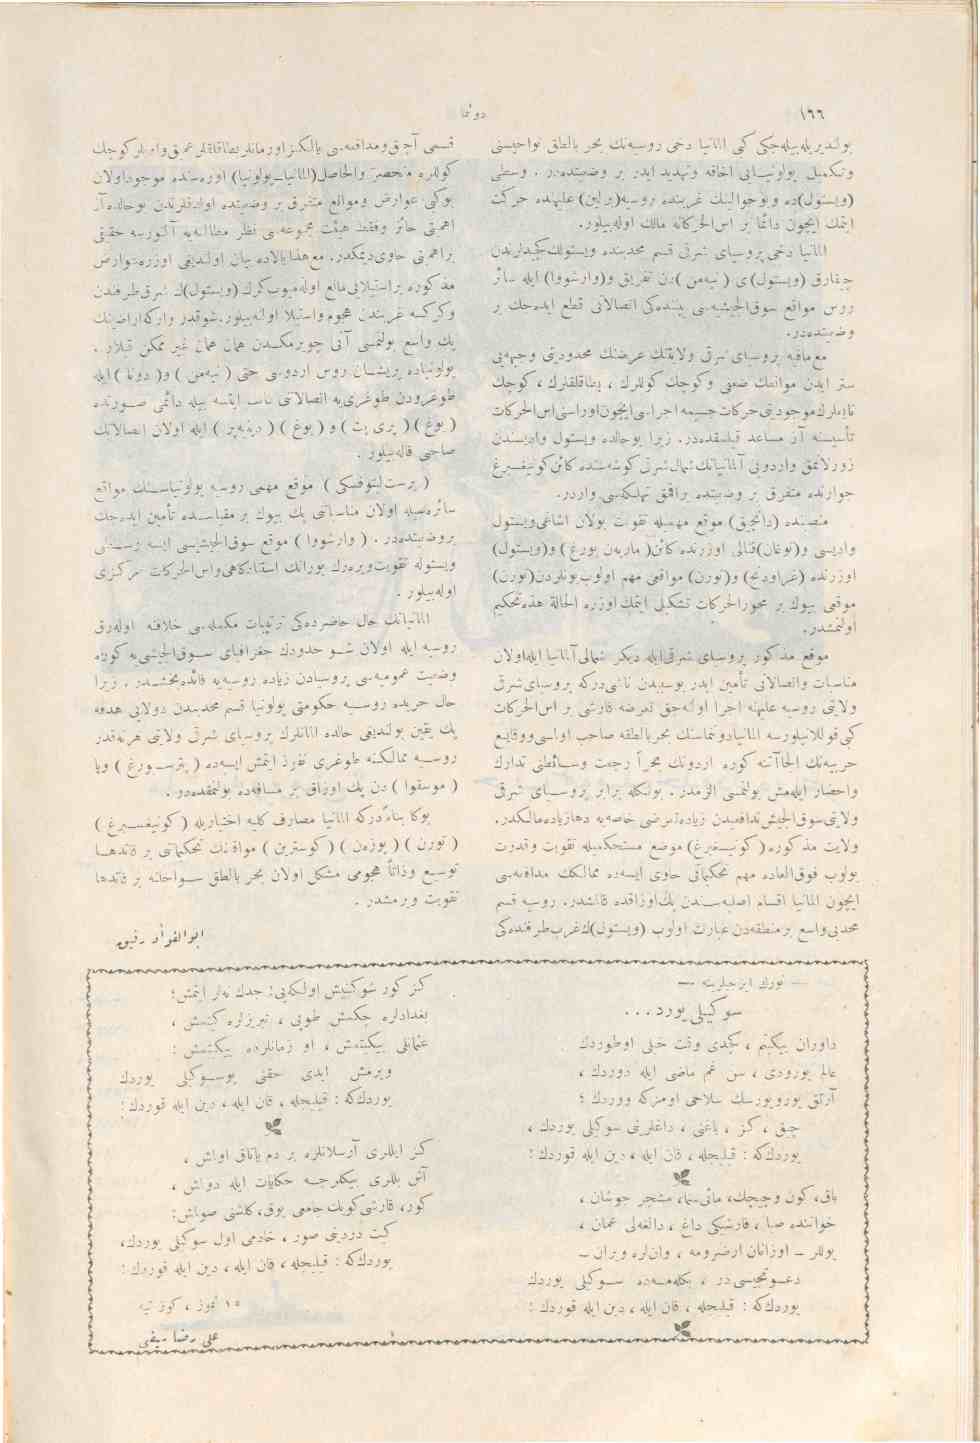 ١٦٦
دوننما
بولنديريله‌بيله‌جكی كبی المانيا دخی روسيه‌نك بحر بالطق نواحيسنی
وتكميل پولونيايی اخافه وتهديد ايدر بر وضعيتده‌در. وسطی
(ويستول)ده ونوجوالينك غربنده روسيه(برلين) عليهنده حركت
ايتمك ايچون دائما بر اس‌الحركاته مالك اوله‌بيلور.
المانيا دخی پروسيای شرقی قسم محدبنده ويستولك كچيدلرندن
چيقارق (ويستول)ی (نيه‌من)دن تفريق و(وارشووا) ايله سائر
روس مواقع سوق‌الجيشيه‌سی بيننده‌كی اتصالاتی قطع ايده‌جك بر
وضعيتده‌در.
مع‌مافيه پروسيای شرقی ولايتنك عرضنك محدوديتی وجبهه‌يی
ستر ايدن موانعك ضعفی وكوچك كوللرك ، بطاقلقلرك ، كوچك
تپه‌لرك موجوديتی حركات جسيمه اجراسی ايچون اوراسنی اس‌الحركات
تأسيسنه آز مساعد قيلمقده‌در. زيرا بوحالده ويستول واديسندن
زورلانمق واردويی آلمانيانك شمال شرقی كوشه‌سنده كائن كونيغسبرغ
جوارنده متفرق بر وضعيتده براقمق تهلكه‌سی واردر.
منصبنده (دانچيق) موقع مهميله تقويت بولان اشاغی ويستول
واديسی و(نوغات)قنالی اوزرنده كائن( مارين بورغ) و(ويستول)
اوزرنده (غراودنج) و(تورن) مواقعی مهم اولوب بونلردن(تورن)
موقعی بيوك بر محورالحركات تشكيل ايتمك اوزره الحالة هذه تحكيم
اولنمشدر.
موقع مذكور پروسيای شرقی‌ايله ديكر شمالی آلمانيا ايله‌اولان
مناسبات واتصالاتی تأمين ايدر بوسببدن ناشی‌دركه پروسيای شرقی
ولايتی روسيه عليهنه اجرا اولنه‌جق تعرضه قارشی بر اس‌الحركات
كبی قوللانيلورسه المانيا دونماسنك بحر بالطقه صاحب اولسی ووقايع
حربيه‌نك الجاآتنه كوره اردونك بحراً رجعت وسائطنی تدارك
واحضار ايله‌مش بولنمسی الزمدر. بونكله برابر پروسيای شرقی
ولايتی سوق‌الجيش تدافعيدن زياده تعرضی خاصه‌يه دها زياده مالكدر.
ولايت مذكوره( كونيغسبرغ) موضع مستحكميله تقويت وقدرت
بولوب فوق‌العاده مهم تحكيماتی حاوی ايسه‌ده ممالكك مدافعه‌سی
ايچون المانيا اقسام اصليه‌سندن پك‌اوزاقده قالمشدر. روسيه قسم
محدبی‌واسع بر منطقه‌دن عبارت اولوب (ويستول)ك‌غرب طرفنده‌كی
قسمی آچيق ومدافعه‌سی يالكز اورمانلر بطاقلقلر عميق واديلر كوچك
كوللره منحصر والحاصل(المانيا ـ پولونيا) اوره‌سنده موجود اولان
بوكبی عوارض وموانع متفرق بر وضعيتده اولدقلرندن بوحالده آز
اهميتی حائز وفقط هيئت مجموعه‌سی نظر مطالعه‌يه آلنورسه حقيقی
براهميتی حاوی ديمكدر. مع‌هذا بالاده بيان اولنديغی اوزره عوارض
مذكوره براستيلايی مانع اوله‌ميوب كرك (ويستول)ك شرق طرفندن
وكركسه غربندن هجوم واستيلا اولنه‌بيلور. شوقدر واركه اراضينك
پك واسع بولنمسی آنی چويرمكدن همان همان غير ممكن قيلار.
پولونياده پريشان روس اردوسی حتی (نيه‌من ) و( دونا ) ايله
طوغرودن طوغری‌يه اتصالاتی غائب ايتسه بيله دائمی صورتده
( بوغ) ( پری پت ) و ( بوغ ) ( دينيه‌پر ) ايله اولان اتصالاتك
صاحبی قاله‌بيلور .
( برست‌ليتوفسكی ) موقع مهمی روسيه پولونياسنك مواقع
سائره‌سيله اولان مناسباتنی پك بيوك بر مقياسده تأمين ايده‌جك
بروضعيتده‌در. ( وارشووا ) موقع سوق‌الجيشيسی ايسه وسطی
ويستوله تقويت ويره‌رك بورانك استنادكاهی واس‌الحركات مركزی
اوله‌بيلور .
المانيانك حال حاضرده‌كی ترتيبات مكمله‌سی خلافنه اوله‌رق
روسيه ايله اولان شو حدودك جغرافيای سوق‌الجيشی‌يه كوره
وضعيت عموميه‌سی پروسيادن زياده روسيه‌يه فائده‌بخشدر. زيرا
حال حربده روسيه حكومتی پولونيا قسم محدبندن دولايی هدفه
پك يقين بولنديغی حالده المانلرك پروسيای شرقی ولايتی هر نه‌قدر
روسيه ممالكنه طوغری نفوذ ايتمش ايسه‌ده ( پترسبورغ ) ويا
( موسقوا ) دن پك اوزاق بر مسافه‌ده بولنمقده‌در.
بوكا بناءً دركه المانيا مصارف كليه اختياريله ( كونيغسبرغ )
( تورن ) ( پوزه‌ن ) ( كوسترين ) مواقعنك تحكيماتنی بر قاتدها
توسيع وذاتاً هجومی مشكل اولان بحر بالطق سواحلنه بر قاتدها
تقويت ويرمشدر .
ابوالفؤاد رفيق
— تورك ايزجيلرينه —
سوكيلی يورد...
داوران بيكيتم ، كچدی وقت خيلی اوطوردك
عالم يورودی ، سن غم ماضی ايله دوردك ،
آرتق يورويورسك سلاحی اومزكه ووردك ؛
چيق ، كز ، باغنی ، داغلرينی سوكيلی يوردك ،
يوردك‌كه : قيليجله ، قان ايله ، دين ايله قوردك :
باق، كون وچيچك، مائی سما، مشجر جوشان ،
خواننده صبا ، قارشيكی داغ ، دالغه‌لی عمان ،
يوللر ـ اوزانان ارضرومه ، وانلره ويران ـ
دعوتجيسی‌در ، بكله‌مه‌ده سوكيلی يوردك
يوردك‌كه : قيليجله ، قان ايله ، دين ايله قوردك :
كز كور شو كنيش اولكه‌يی: جدك نه‌لر ايتمش؛
بغدادلره چكمش طوپی ، تبريزلره كيتمش ،
عثمانلی بيكيتمش ، او زمانلرده بيكيتمش :
ويرمش ابدی حقنی بوسوكيلی يوردك
يوردك‌كه : قيليجله ، قان ايله ، دين ايله قوردك:
كز ايللری آرسلانلره بر دم ياتاق اولمش ،
آش بللری بيكلرجه حكايات ايله دولمش ،
كور، قارشی كويك جامعی يوق، كلشنی صولمش:
كيت دردينی صور ، خادمی اول سوكيلی يوردك،
يوردك‌كه : قيليجله ، قان ايله ، دين ايله قوردك :
١٥ تموز ، كوز تپه
علی رضا سيفی